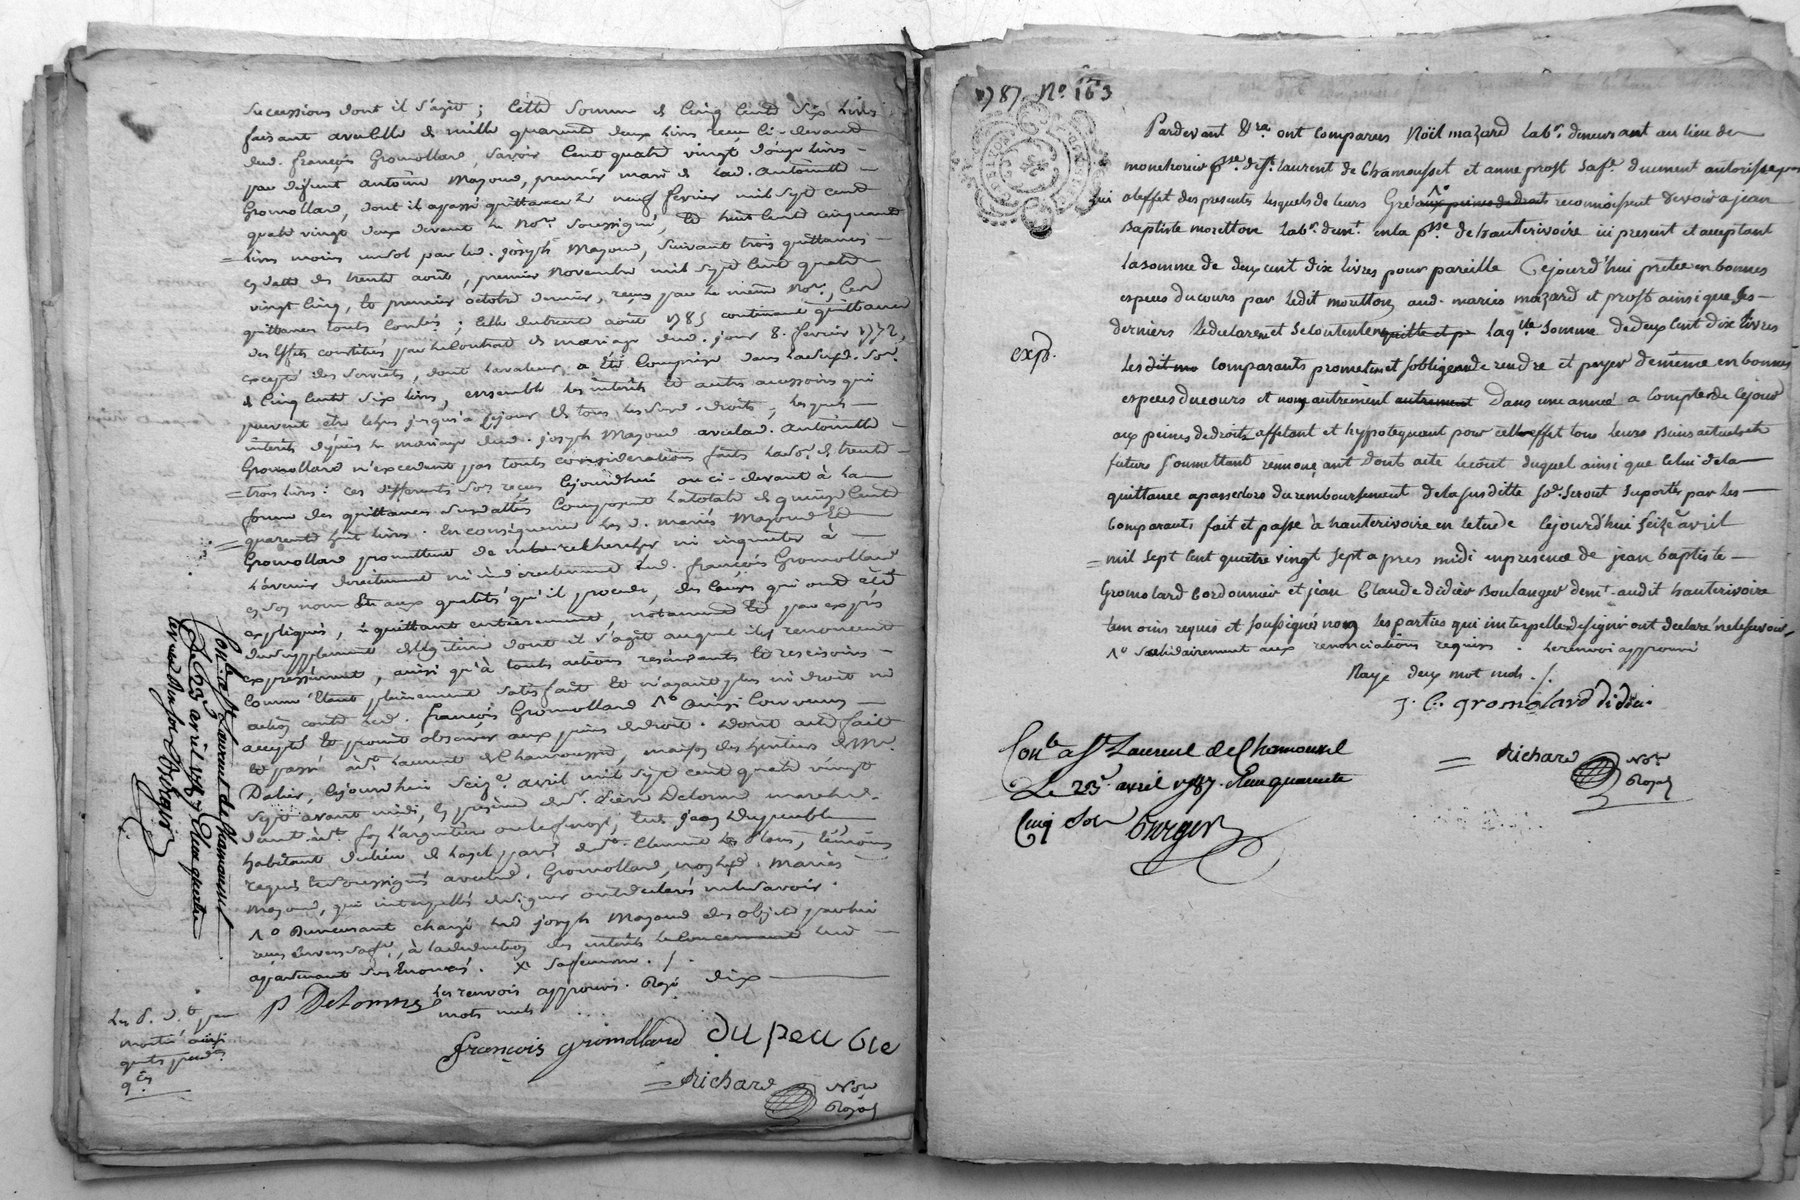 successions dont il s'agit ; cette somme de cinq cents six livres
faisant avec celle de mille quarante deux livres reçue ci-devant
dud. françois Gromollard, savoir cent quatre vingt douze livres
par défunt antoine Mazoud, premier mari de lad. antoinette
Gromollard, dont il a passé quittance le neuf février mil sept cent
quatre vingt deux devant le No.re soussigné, et huit cents cinquante
livres moins un sol par led. joseph Mazoud, suivant trois quittances
en datte des trente août, premier novembre mil sept cent quatre
vingt cinq, et premier octobre dernier, reçues par le même No.re, les
quittances touts contés ; celle du trente août 1785 contenant quittance
des effets constitués par le contrat de mariage dud. jour 8. fevrier 1772,
excepté des serviets, dont la valeur a été comprise dans lad.
de cinq cents six livres, ensemble les intérêts et autres accessoires qui
peuvent être echus jusqu'à ce jour de tous les susd. droits, lesquels
intérêts depuis le mariage dud. joseph Mazoud avec lad. antoinette
Gromollard n'excedent pas toutes considerations faites la so.e de trente
trois livres : ces differentes so.es reçues cejourdhui ou ci-devant à la
forme des quittances susdattées composent la totale de quinze cents
quarante huit livres. En conséquence les d. mariés Mazoud et
Gromollard promettent de ne rechercher ni inquieter à
l'avenir directement ni indirectement led. françois Gromollard
en son nom et aux qualités qu'il procede, des causes qui ont été
expliqués, le quittant entièrement, notamment et par exprès
du supplement de légitime dont il s'agit auquel ils renoncent
expressément, ainsi qu'à toutes actions et rescisoires
comme étant pleinement satisfaits et n'ayant plus ni droit ni
action contre led. françois Gromollard Ainsi convenu
accepté et promis observer aux peines de droit. Dont acte fait
et passé à st. Laurent de Chamousset, maison des héritiers de Mr.
Dalier, cejourdhui seize avril mil sept cent quatre vingt
sept avant midi, en présence de Sr. pierre Delorme marchd.
demt. à st. foy l'argentière et de jean Dupeuble
habitant du lieu de parr. de st. Clement les places, témoins
requis et soussignés avec led. Gromollard, non lesd. mariés
Mazoud, qui interpellés de signer ont déclarés ne le savoir.
demeurant chargé led. joseph Mazoud des objets par lui
reçus envers sa fe., à la deduction des intérêts le concernant
appartenant
les renvois approuvés. Rayé dix
mots nuls
P Delorme
françois gromollard dupeuble
Richard Nore
Royal
Conlé a st. Laurent de Chamousset
Le 23 avril 1787
Bergier
1787. No. 163
Pardevant &ra. ont comparus Nöel mazard labr. demeurant au lieu de
monchorier psse. de st. Laurent de Chamousset et anne prost sa fe. dument autorisée par
lui a l'effet des presents lesquels de leurs Gré aux peines de droit reconnoissent devoir a jean
Baptiste moretton labr. demt. en la psse. de hauterivoire ici present et acceptant
la somme de deux cent dix livres pour pareille Cejourd'hui pretée en bonnes
especes du cours par ledit moretton aud. mariés mazard et prost ainsi que ses
derniers le declarent et se contentent quitte et p laqlle somme de deux cent dix livres
exp.
Les dit mo comparants promettent et sobligent de rendre et payer de même en bonnes
especes du cours et non autrement autrement Dans une année a compter de cejourd
aux peines de droits affetant et hypotequant pour cet effet tous leurs biens actuels et
futurs soumettant rennonçant Dont acte le cout duquel ainsi que celui de la
quittance a passer lors du remboursement de la susditte so. seront suportés par les
comparants fait et passé à hauterivoire en letude Cejourd'hui seize avril
mil sept cent quatre vingt sept a pres midi en presence de jean baptiste
Gromolard Cordonnier et jean Claude didier Boulanger demt. audit hauterivoire
temoins requis et soussignés non les parties qui interpellés de signer ont declaré ne le savoir,
No solidairement aux renonciations requises. le renvoi approuvé
Rayé deux mot nuls.
J. B. gromolard didier
Conlé a St. Laurent de Chamousset
Le 23 avril 1787. Reçu quarante
Cinq sols Bergier
Richard Nore
Royal